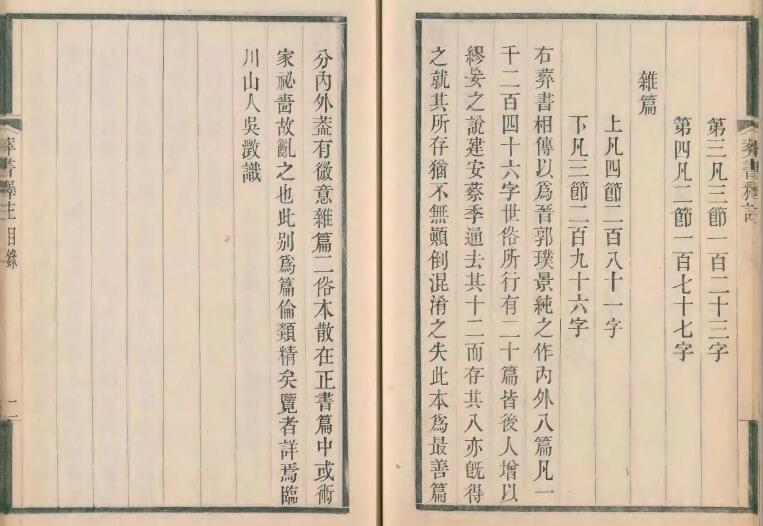 第三凡三節一百二十三字
第四凡二節一百七十七字
雜篇
上凡四節二百八十一字
下凡三節二百九十六字
右葬書相傳以爲晉郭璞景純之作內外八篇凡一
千二百四十六字世俗所行有二十篇皆後人增以
繆妄之說建安蔡季通去其十二而存其八亦旣得
之就其所存猶不無顚倒混淆之失此本爲最善篇
分內外蓋有微意雜篇二俗本散在正書篇中或術
家祕嗇故亂之也此别爲篇倫類精矣覽者詳焉臨
川山人吳澂識
葬書釋注 目錄
二